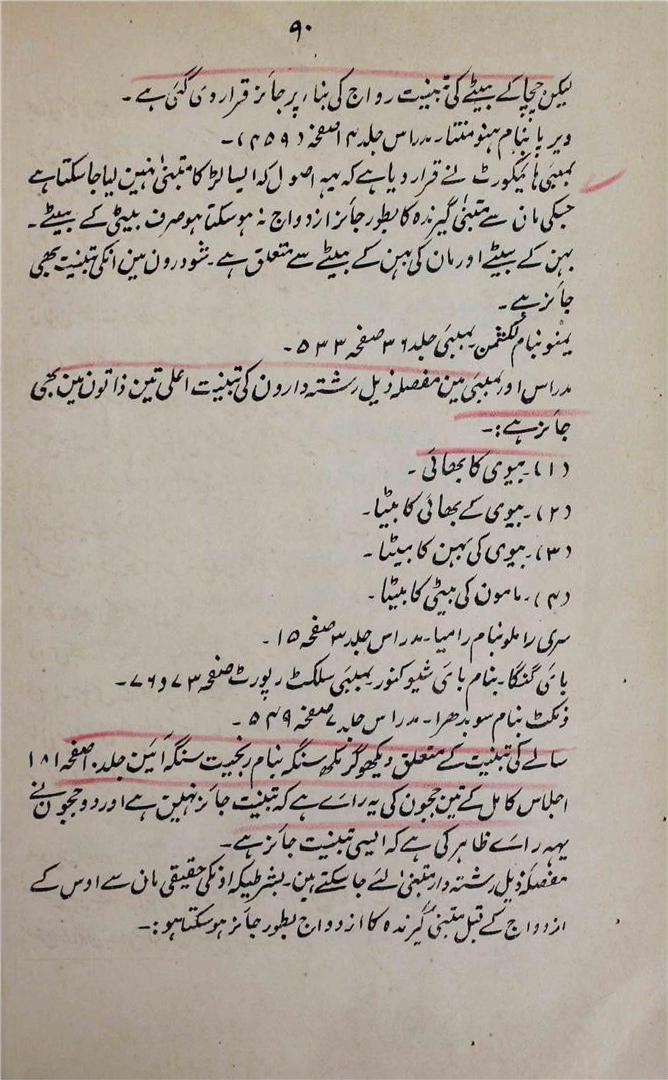 ۹۰
لیکن چچا کے بیٹے کی تبنیت رواج کی بنا پر جائز قرار دی گئی ہے۔
ویریا بنام ہنومنتا۔ مدراس جلد ۱۴ صفحہ (۴۵۹)۔
بمبئی ہائیکورٹ نے قرار دیا ہے کہ یہہ اصول کہ ایسا لڑکا متبنیٰ نہین لیا جا سکتا ہے
جسکی مان سے متبنیٰ گیرندہ کا بطور جائز ازدواج نہ ہو سکتا ہو صرف بیٹی کے بیٹے۔
بہن کے بیٹے اور مان کی بہن کے بیٹے سے متعلق ہے۔ شودرون مین انکی تبنیت بھی
جائز ہے۔
یمنو بنام لکشمن۔ بمبئی جلد ۳۶ صفحہ ۵۳۳۔
مدراس اور بمبئی مین مفصلہ ذیل رشتہ دارون کی تبنیت اعلیٰ تین ذاتون مین بھی
جائز ہے:۔
(۱)۔ بیوی کا بھائی۔
(۲)۔ بیوی کے بھائی کا بیٹا۔
(۳)۔ بیوی کی بہن کا بیٹا۔
(۴)۔ مامون کی بیٹی کا بیٹا۔
سری راملو بنام رامیا۔ مدراس جلد ۳ صفحہ ۱۵۔
بای گنگا۔ بنام بای شیوکنور بمبئی سلکٹ رپورٹ صفحہ ۷۳ و ۷۶۔
ونکٹ بنام سوبدھرا۔ مدراس جلد ۷ صفحہ ۵۴۹۔
سالے کی تبنیت کے متعلق دیکھو گرمکھ سنگہ بنام رنجیت سنگہ آئین جلد ۱۰ صفحہ ۱۸۱
اجلاس کامل کے تین ججون کی یہ راے ہے کہ تبنیت جائز نہین ہے اور دو ججون نے
یہہ راے ظاہر کی ہے کہ ایسی تبنیت جائز ہے۔
مفصلہ ذیل رشتہ دار متبنیٰ لئے جا سکتے ہین۔ بشرطیکہ اونکی حقیقی مان سے اوس کے
ازدواج کے قبل متبنیٰ گیرندہ کا ازدواج بطور جائز ہو سکتا ہو:۔